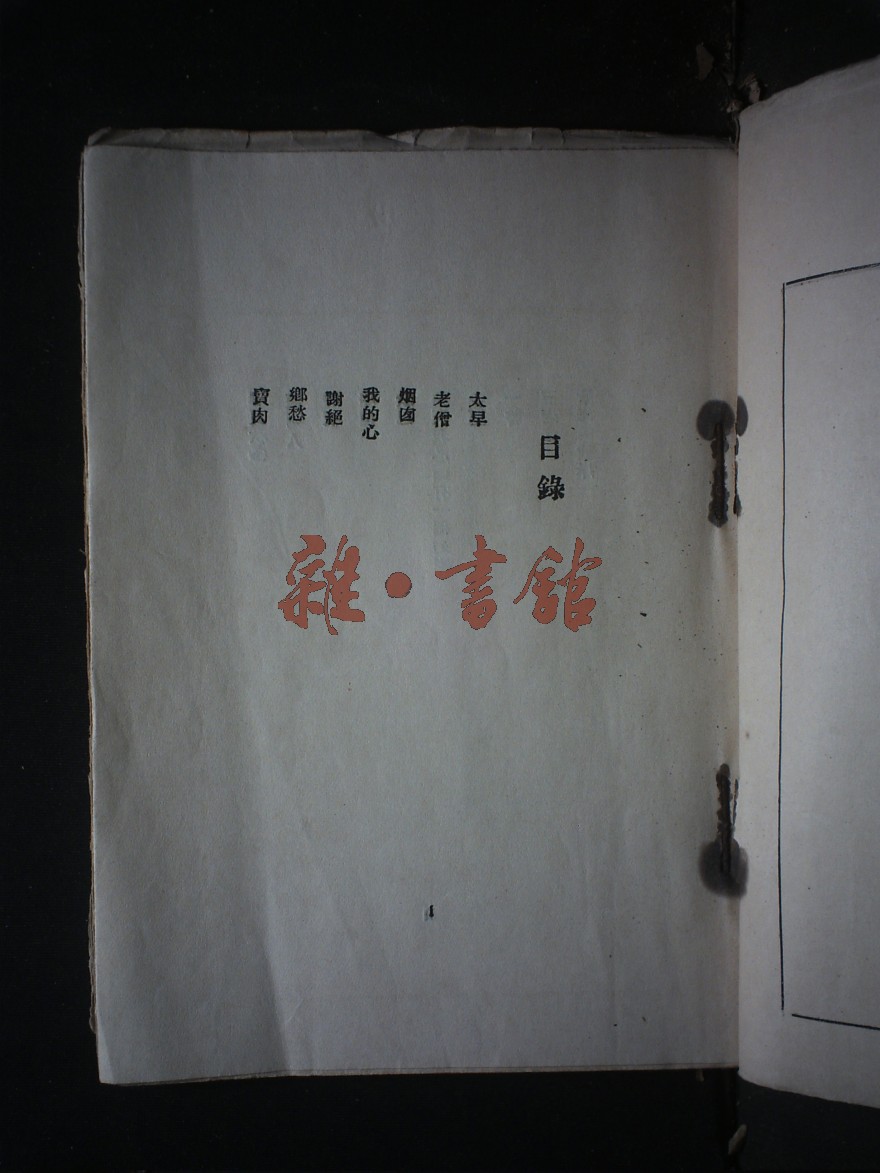 目錄
太早
老僧
烟囱
我的心
謝絕
鄉愁
賣肉
1
雜·書館